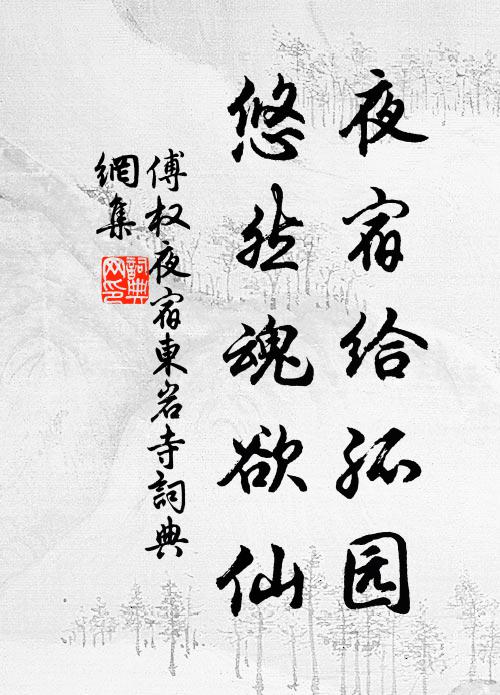 夜宿给孤园
悠然魂欲仙
傅权夜宿東岩寺詞典
網集
詞典网印